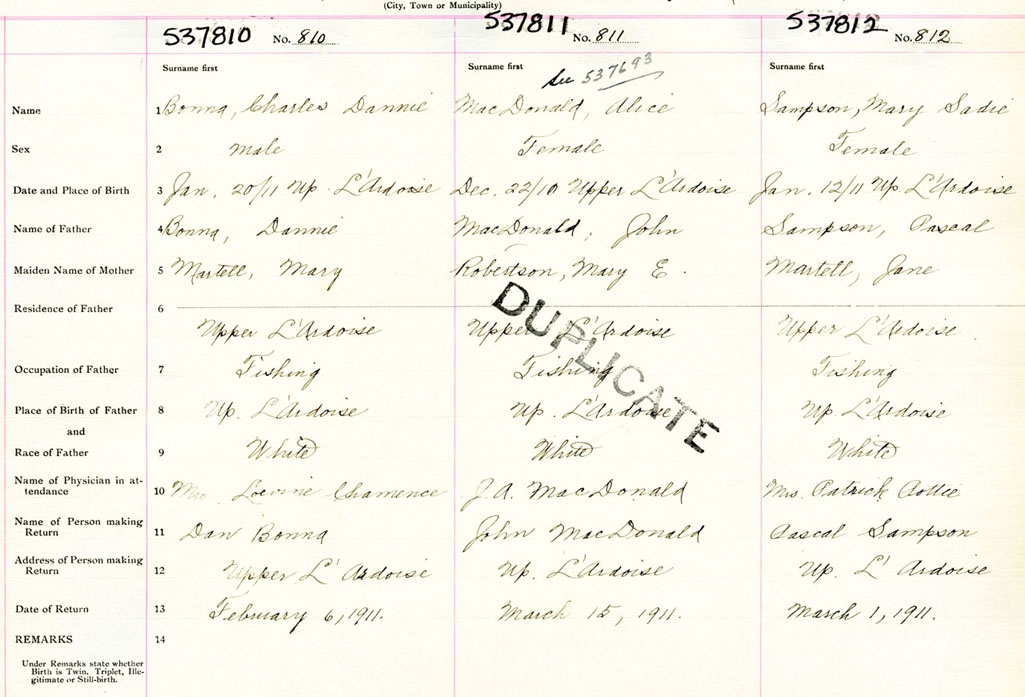 (City, Town or Municipality)
537810 No. 810 537811 No. 811 537812 No. 812
Surname first Surname first Surname first
See 537693
Name 1 Bonna, Charles Dannie MacDonald, Alice Sampson, Mary Sadie
Sex 2 Male Female Female
Date and Place of Birth 3 Jan. 20/11 Up. L'Ardoise Dec. 22/10 Upper L'Ardoise Jan. 12/11 Up. L'Ardoise
Name of Father 4 Bonna, Dannie MacDonald, John Sampson, Pascal
Maiden Name of Mother 5 Martell, Mary Robertson, Mary E. Martell, Jane
Residence of Father 6
Upper L'Ardoise Upper L'Ardoise Upper L'Ardoise
DUPLICATE
Occupation of Father 7 Fishing Fishing Fishing
Place of Birth of Father 8 Up. L'Ardoise Up. L'Ardoise Up. L'Ardoise
and
Race of Father 9 White White White
Name of Physician in at-
tendance 10 Mrs. Chamence J.A. MacDonald Mrs. Patrick
Name of Person making
Return 11 Dan Bonna John MacDonald Pascal Sampson
Address of Person making
Return 12 Upper L'Ardoise Up. L'Ardoise Up. L'Ardoise
Date of Return 13 February 6, 1911. March 15, 1911. March 1, 1911.
REMARKS 14
Under Remarks state whether
Birth is Twin, Triplet, Ille-
gitimate or Still-birth.